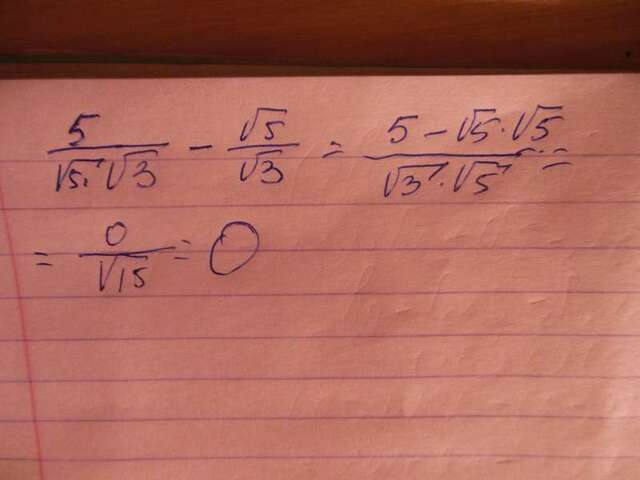 5/(√5·√3) − √5/√3 = (5 − √5·√5)/(√3·√5) =
= 0/√15 = 0